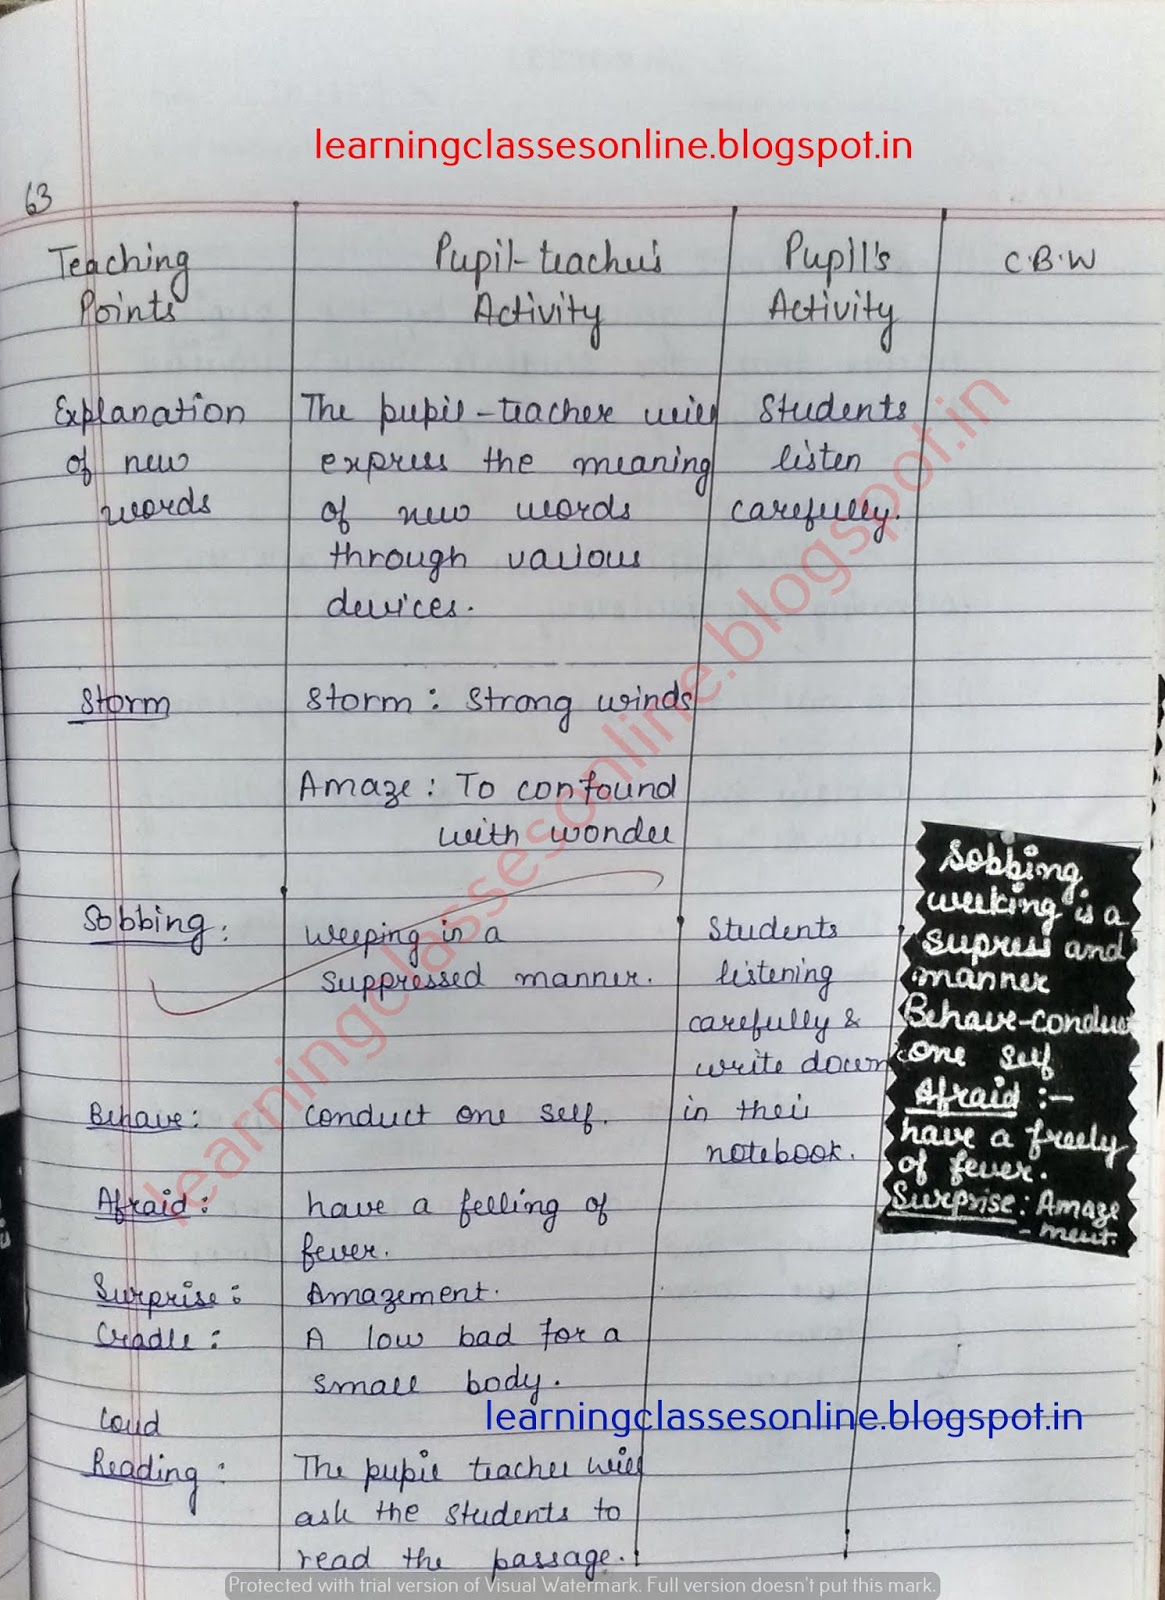 learningclassesonline.blogspot.in
63
Teaching Points
Pupil-teacher's Activity
Pupil's Activity
C.B.W
Explanation
of new
words
The pupil-teacher will
express the meaning
of new words
through various
devices.
Students
listen
carefully.
Storm
Storm : Strong winds
Amaze : To confound
with wonder
Sobbing :
Weeping in a
suppressed manner.
Students
listening
carefully &
write down
in their
notebook.
Behave :
Conduct one self.
Afraid :
have a felling of
fever.
Surprise :
Amazement.
Cradle :
A low bad for a
small body.
Loud
Reading :
The pupil teacher will
ask the students to
read the passage.
Sobbing
weeking is a
supress and
manner
Behave-conduct
one self
Afraid :-
have a freely
of fever.
Surprise : Amaze
-ment.
learningclassesonline.blogspot.in
learningclassesonline.blogspot.in
Protected with trial version of Visual Watermark. Full version doesn't put this mark.